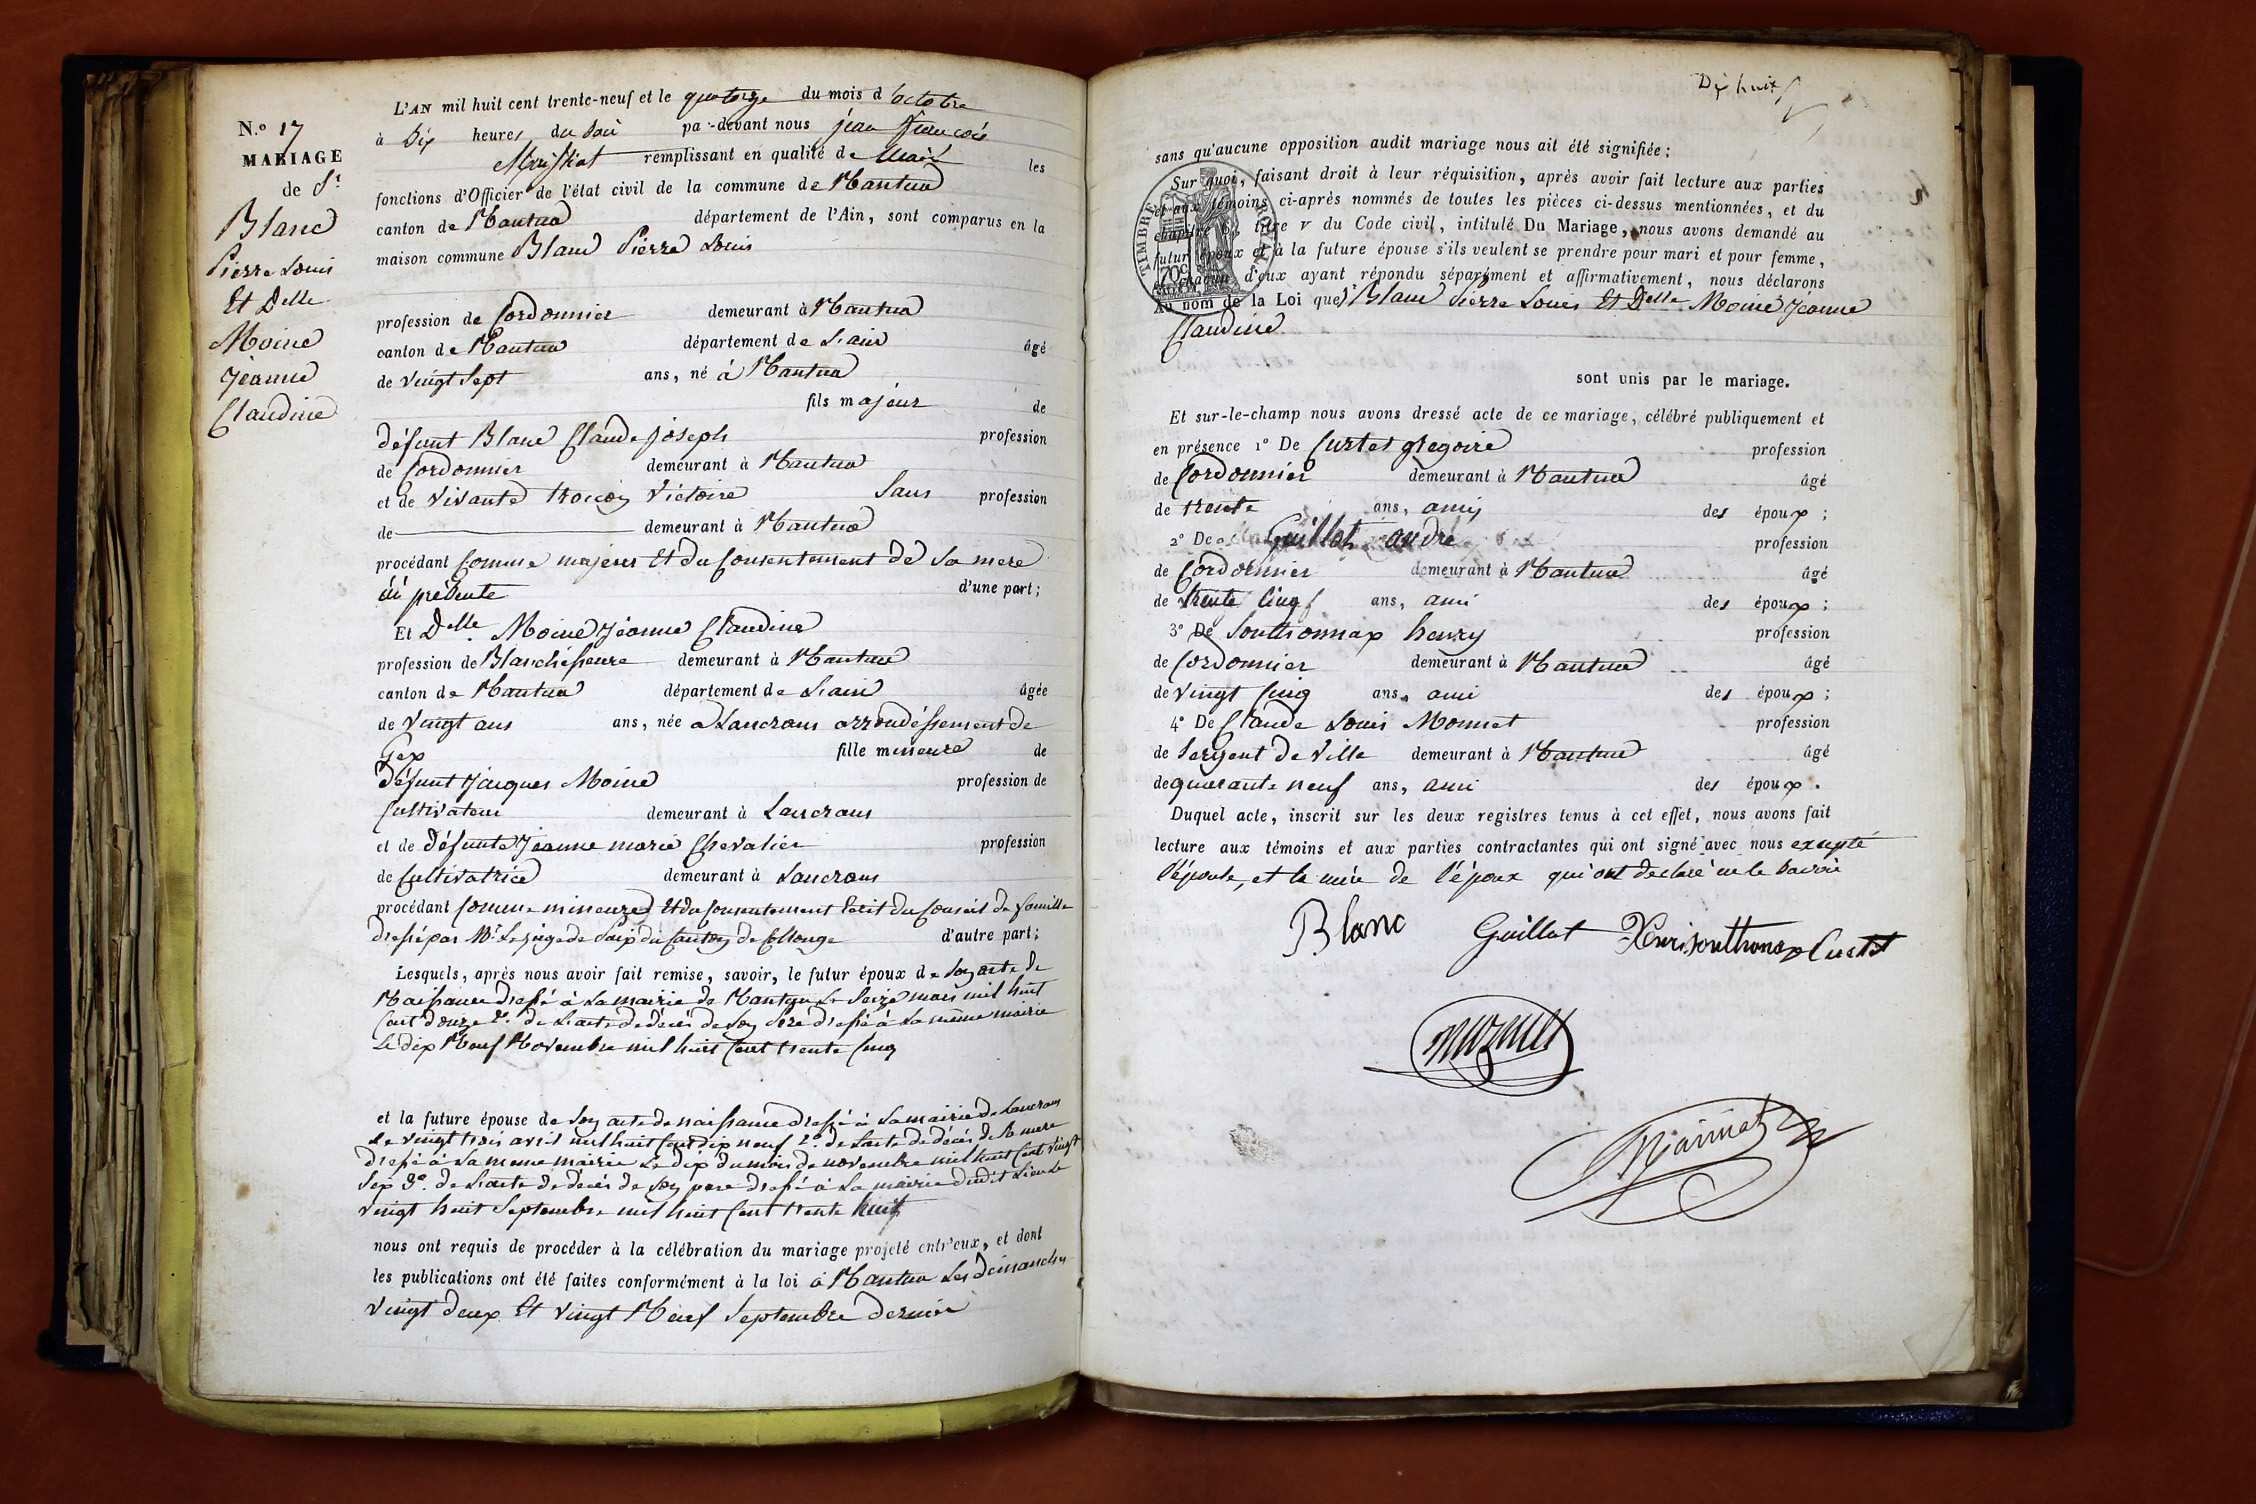 L'AN mil huit cent trente-neuf et le quatorze du mois d'octobre
N.° 17
à Dix heures du soir par-devant nous jean François
MARIAGE
remplissant en qualité de Maire les
de Sr
fonctions d'Officier de l'état civil de la commune de Nantua
Blanc
canton de Nantua département de l'Ain, sont comparus en la
Pierre Louis
maison commune Blanc Pierre Louis
Et Delle
profession de Cordonnier demeurant à Nantua
Moine
canton de Nantua département de L'ain âgé
Jéanne
de vingt Sept ans, né à Nantua
Claudine
fils majeur de
défunt Blanc Claude Joseph profession
de Cordonnier demeurant à Nantua
et de vivante Victoire Sans profession
de demeurant à Nantua
procédant Comme majeur Et du Consentement de Sa mere
ici présente d'une part;
Et Delle Moine Jéanne Claudine
profession de Blanchisseuse demeurant à Nantua
canton de Nantua département de L'ain âgée
de vingt ans ans, née à Lancrans arrondissement de
Gex fille mineure de
défunt Jacques Moine profession de
Cultivateur demeurant à Lancrans
et de défunte Jéanne marie Chevalier profession
de Cultivatrice demeurant à Lancrans
procédant Comme mineure Et du Consentement Ecrit du Conseil de famille
dressé par Mr Le juge de Paix du Canton de Collonge d'autre part;
Lesquels, après nous avoir fait remise, savoir, le futur époux de Son acte de
Naissance dressé à La mairie de Nantua Le Seize mars mil huit
Cent douze 2° de L'acte de décès de Son Pere dressé à La même mairie
Le dix Neuf Novembre mil huit Cent trente Cinq
et la future épouse de Son acte de naissance dressé à La mairie de Lancrans
Le vingt trois avril mil huit Cent dix neuf 2° de L'acte de décès de Sa mere
dressé à La meme mairie Le dix du mois de novembre mil huit Cent vingt
Six 3° de L'acte de décès de Son pere dressé à La mairie dudit Lieu Le
vingt huit Septembre mil huit Cent trente huit
nous ont requis de procéder à la célébration du mariage projeté entr'eux, et dont
les publications ont été faites conformément à la loi à Nantua Les dimanches
vingt deux Et vingt Neuf Septembre dernier
Dix huit
sans qu'aucune opposition audit mariage nous ait été signifiée;
Sur quoi, faisant droit à leur réquisition, après avoir fait lecture aux parties
et aux témoins ci-après nommés de toutes les pièces ci-dessus mentionnées, et du
chapitre 6, titre V du Code civil, intitulé Du Mariage, nous avons demandé au
futur époux et à la future épouse s'ils veulent se prendre pour mari et pour femme,
et chacun d'eux ayant répondu séparément et affirmativement, nous déclarons
Au nom de la Loi que Sr Blanc Pierre Louis Et Delle Moine Jéanne
Claudine
TIMBRE ROYAL
70c
sont unis par le mariage.
Et sur-le-champ nous avons dressé acte de ce mariage, célébré publiquement et
en présence 1° De Curtet gregoire profession
de Cordonnier demeurant à Nantua âgé
de trente ans, ami des époux;
2° De Guillot andré profession
de Cordonnier demeurant à Nantua âgé
de trente Cinq ans, ami des époux;
3° De Southonnax henry profession
de Cordonnier demeurant à Nantua âgé
de vingt Cinq ans, ami des époux;
4° De Claude Louis Monnet profession
de Sergent de Ville demeurant à Nantua âgé
de quarante neuf ans, ami des époux.
Duquel acte, inscrit sur les deux registres tenus à cet effet, nous avons fait
lecture aux témoins et aux parties contractantes qui ont signé avec nous excepté
l'épouse, et la mère de l'époux qui ont declaré ne le savoir
Blanc Guillot Henri Southonnax Curtet